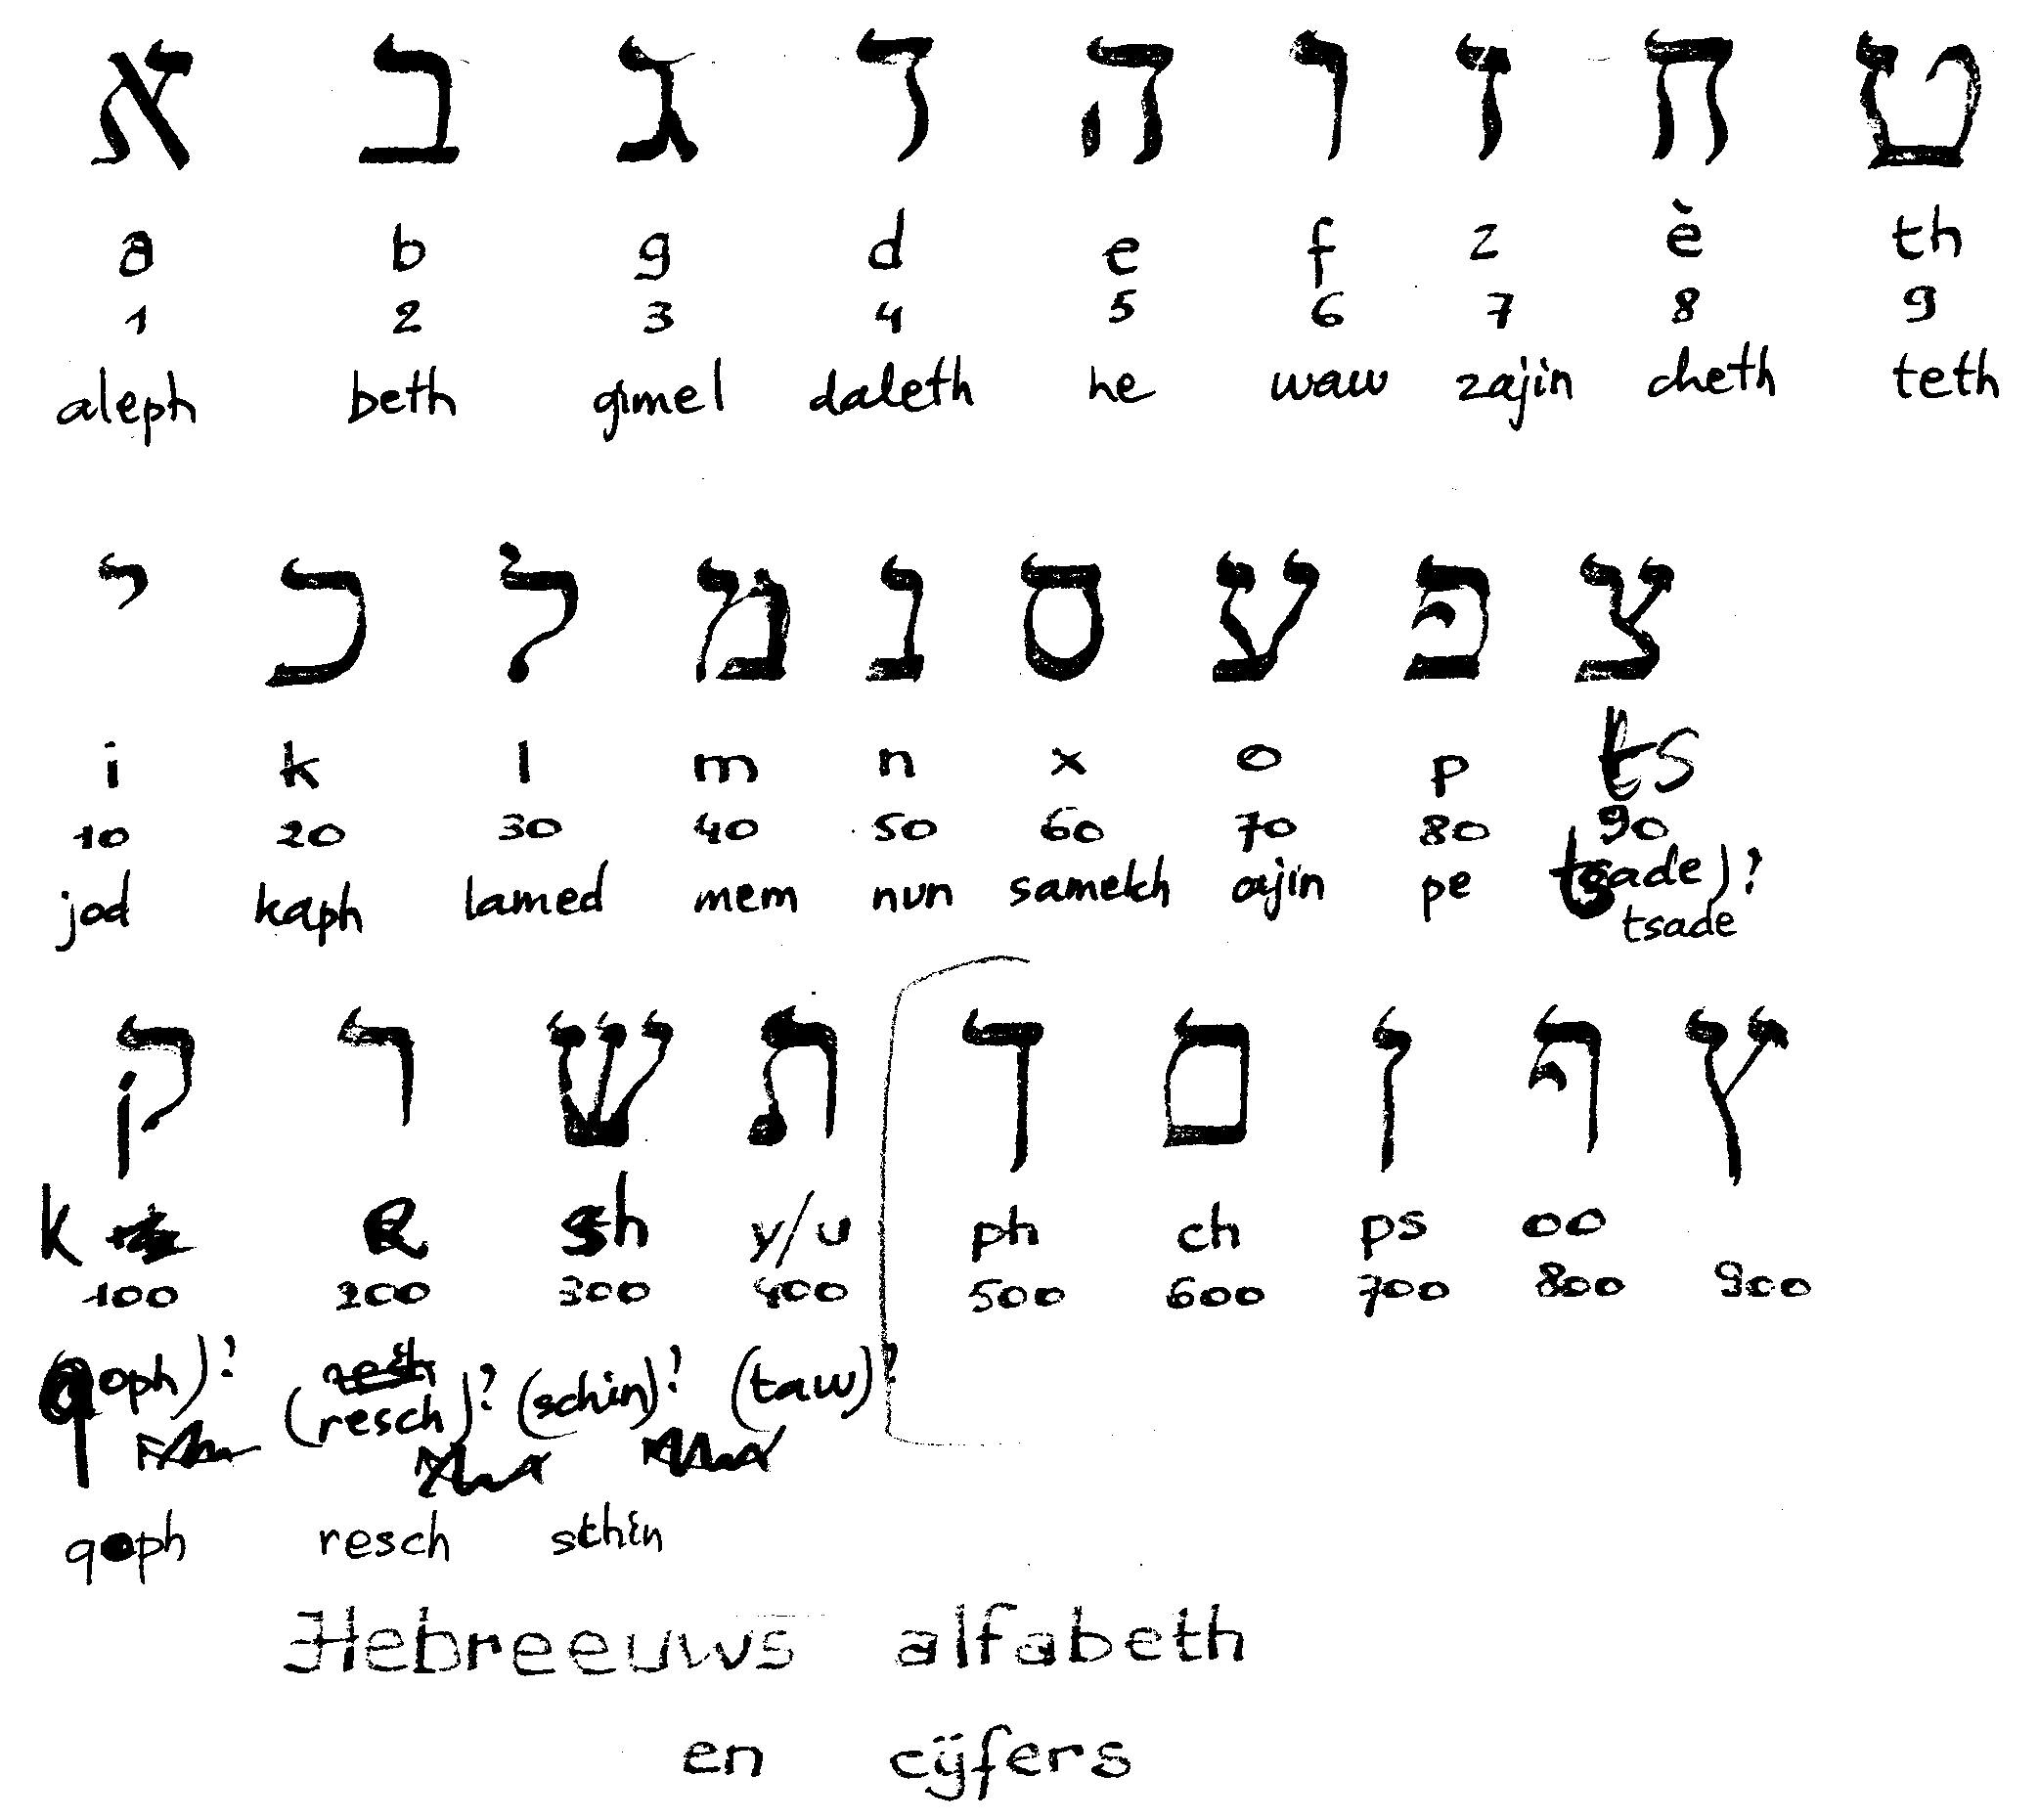 א ב ג ד ה ו ז ח ט
a b g d e f z è th
1 2 3 4 5 6 7 8 9
aleph beth gimel daleth he waw zajin cheth teth
י כ ל מ נ ס ע פ צ
i k l m n x o p ts
10 20 30 40 50 60 70 80 90
jod kaph lamed mem nun samekh ajin pe tsade)?
tsade
ק ר ש ת ך ם ן ף ץ
k R sh y/u ph ch ps oo
100 200 300 400 500 600 700 800 900
(qoph)? (resch)? (schin)? (taw)?
qoph resch sthin
Hebreeuws alfabeth
en cijfers